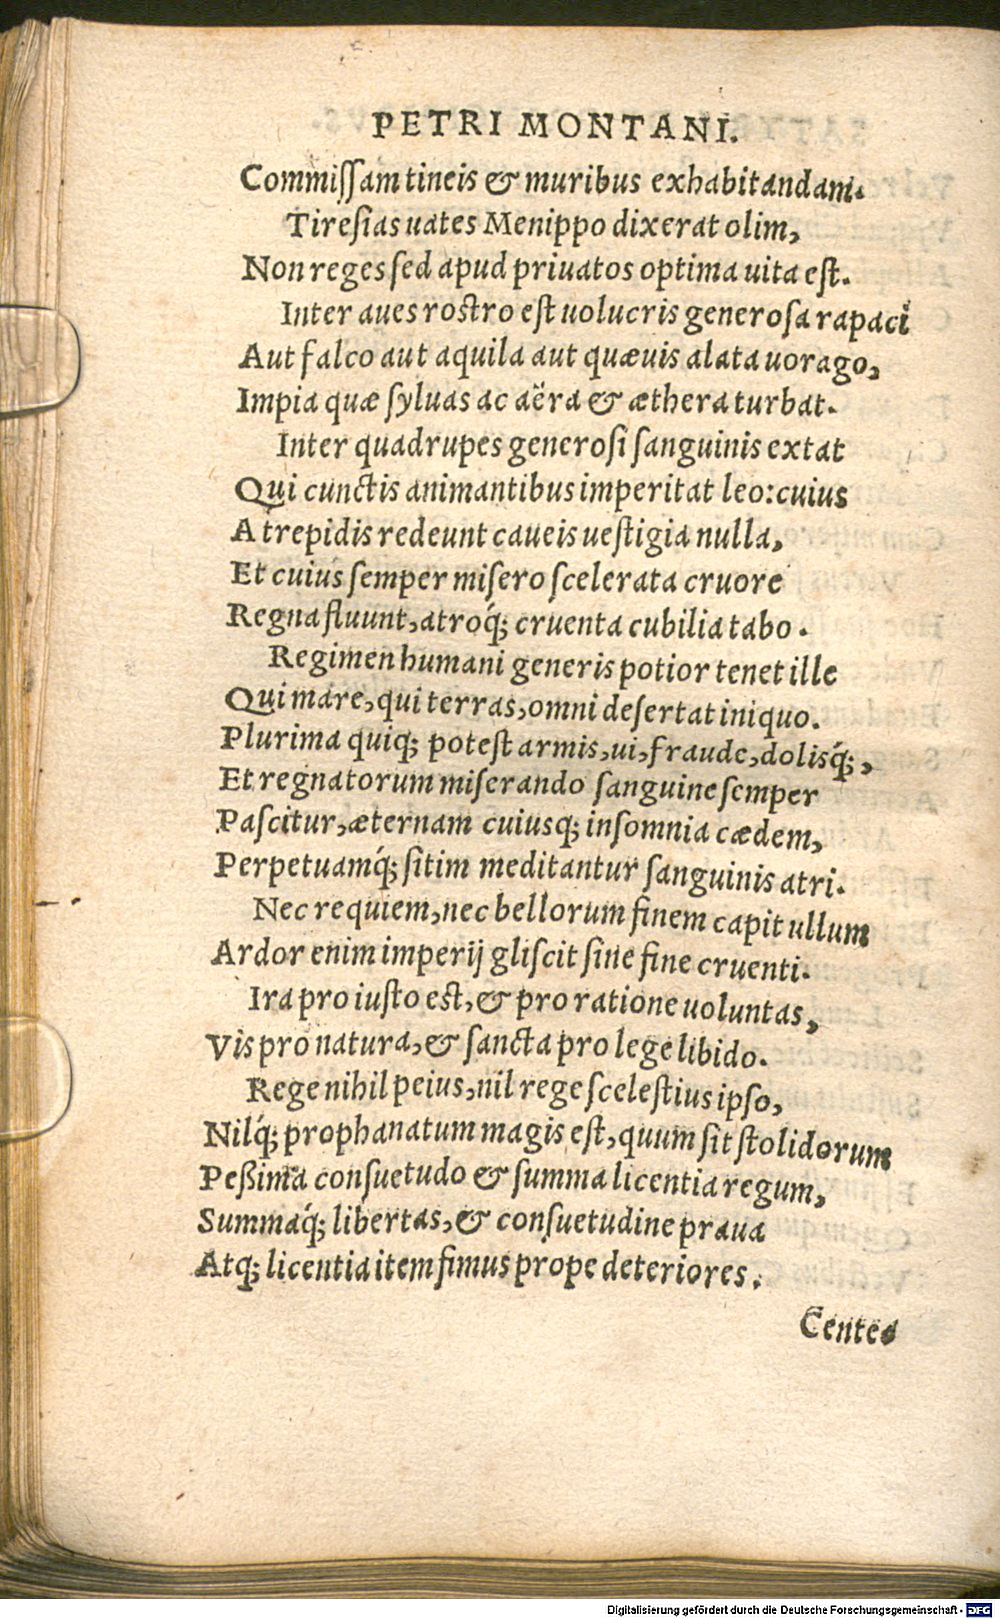 PETRI MONTANI.
Commiſſam tineis & muribus exhabitandam.
Tireſias uates Menippo dixerat olim,
Non reges ſed apud priuatos optima uita eſt.
Inter aues roſtro eſt uolucris generoſa rapaci
Aut falco aut aquila aut quæuis alata uorago,
Impia quæ ſyluas ac aëra & æthera turbat.
Inter quadrupes generoſi ſanguinis extat
Qui cunctis animantibus imperitat leo: cuius
A trepidis redeunt caueis ueſtigia nulla,
Et cuius ſemper miſero ſcelerata cruore
Regna fluunt, atroq́; cruenta cubilia tabo.
Regimen humani generis potior tenet ille
Qui mare, qui terras, omni deſertat iniquo.
Plurima quiq; poteſt armis, ui, fraude, dolisq́;,
Et regnatorum miſerando ſanguine ſemper
Paſcitur, æternam cuiusq; inſomnia cædem,
Perpetuamq́; ſitim meditantur ſanguinis atri.
Nec requiem, nec bellorum finem capit ullum
Ardor enim imperij gliſcit ſine fine cruenti.
Ira pro iuſto eſt, & pro ratione uoluntas,
Vis pro natura, & ſancta pro lege libido.
Rege nihil peius, nil rege ſceleſtius ipſo,
Nilq́; prophanatum magis eſt, quum ſit ſtolidorum
Peßima conſuetudo & ſumma licentia regum,
Summaq́; libertas, & conſuetudine praua
Atq; licentia item fimus prope deteriores.
Centes
Digitalisierung gefördert durch die Deutsche Forschungsgemeinschaft - DFG